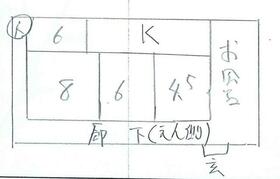 6
K
お風呂
8
6
4.5
廊下(えん側)
玄